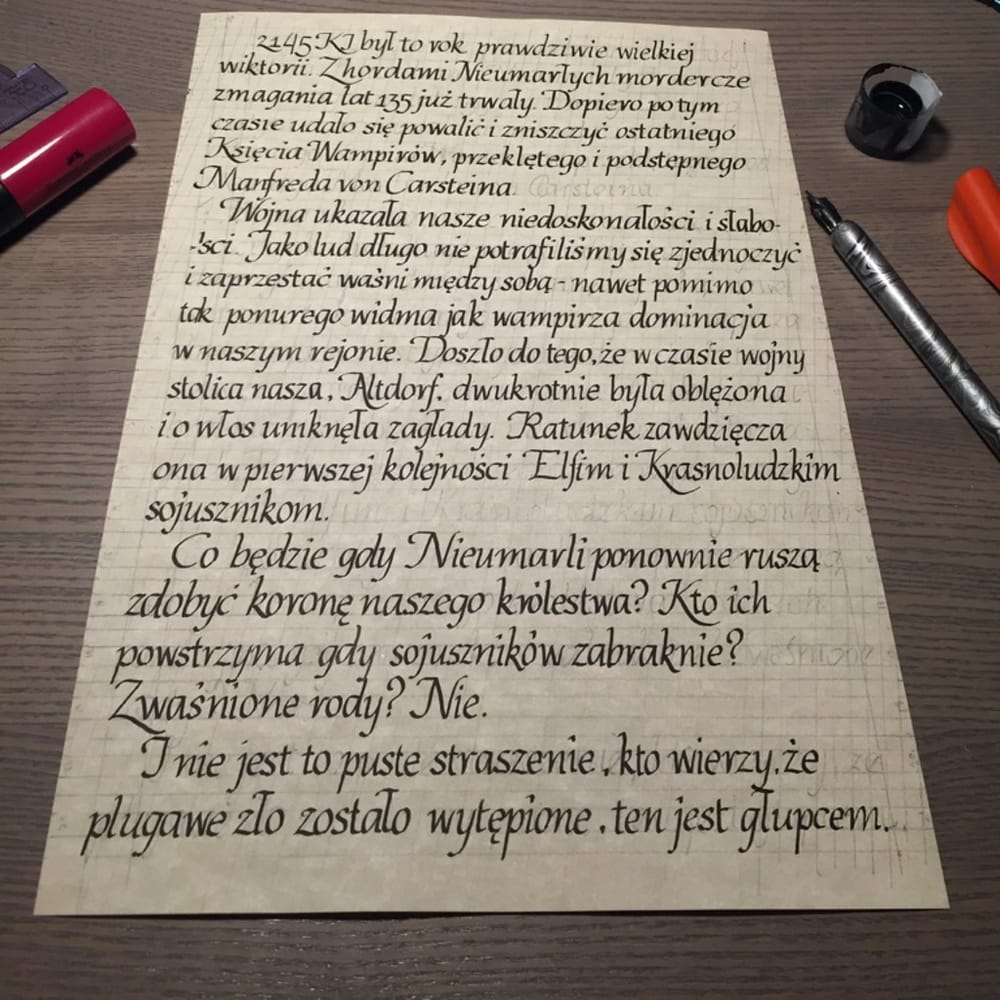 2145 KI był to rok prawdziwie wielkiej
wiktorii. Z hordami Nieumarłych mordercze
zmagania lat 135 już trwały. Dopiero po tym
czasie udało się powalić i zniszczyć ostatniego
Księcia Wampirów, przeklętego i podstępnego
Manfreda von Carsteina.
Wojna ukazała nasze niedoskonałości i słabo-
-ści. Jako lud długo nie potrafiliśmy się zjednoczyć
i zaprzestać waśni między sobą - nawet pomimo
tak ponurego widma jak wampirza dominacja
w naszym rejonie. Doszło do tego, że w czasie wojny
stolica nasza, Altdorf, dwukrotnie była oblężona
i o włos uniknęła zagłady. Ratunek zawdzięcza
ona w pierwszej kolejności Elfim i Krasnoludzkim
sojusznikom.
Co będzie gdy Nieumarli ponownie ruszą
zdobyć koronę naszego królestwa? Kto ich
powstrzyma gdy sojuszników zabraknie?
Zwaśnione rody? Nie.
I nie jest to puste straszenie, kto wierzy, że
plugawe zło zostało wytępione, ten jest głupcem.